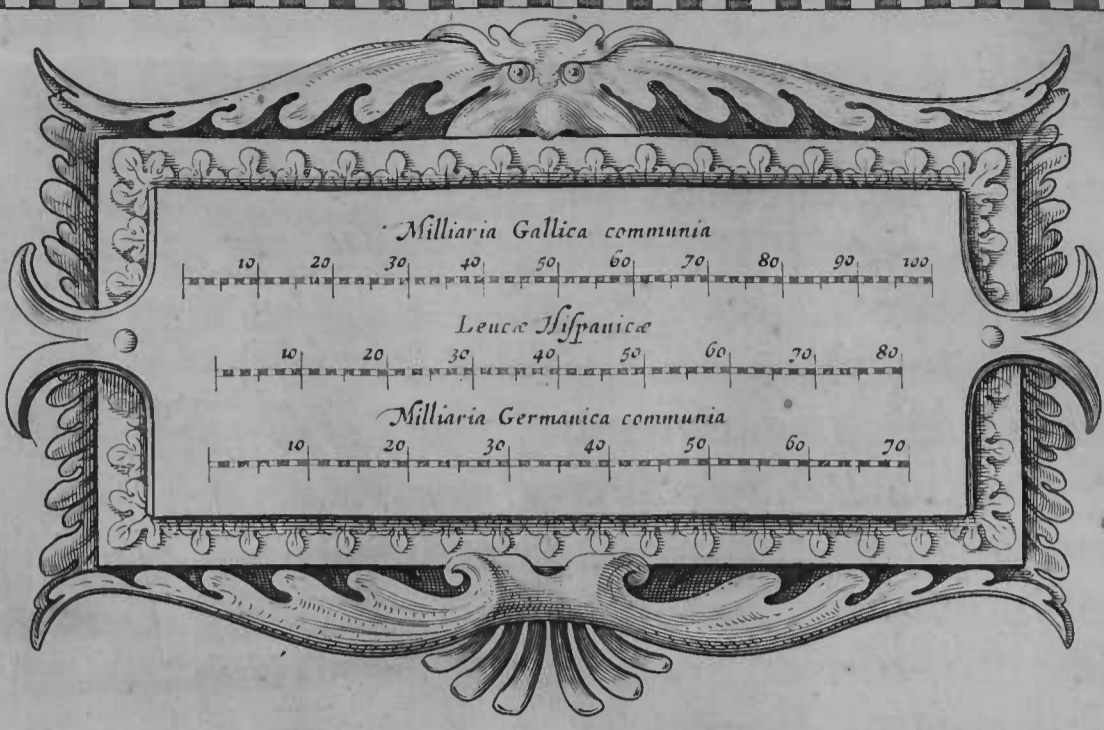 Milliaria Gallica communia
10 20 30 40 50 60 70 80 90 100
Leucæ Hiſpanicæ
10 20 30 40 50 60 70 80
Milliaria Germanica communia
10 20 30 40 50 60 70